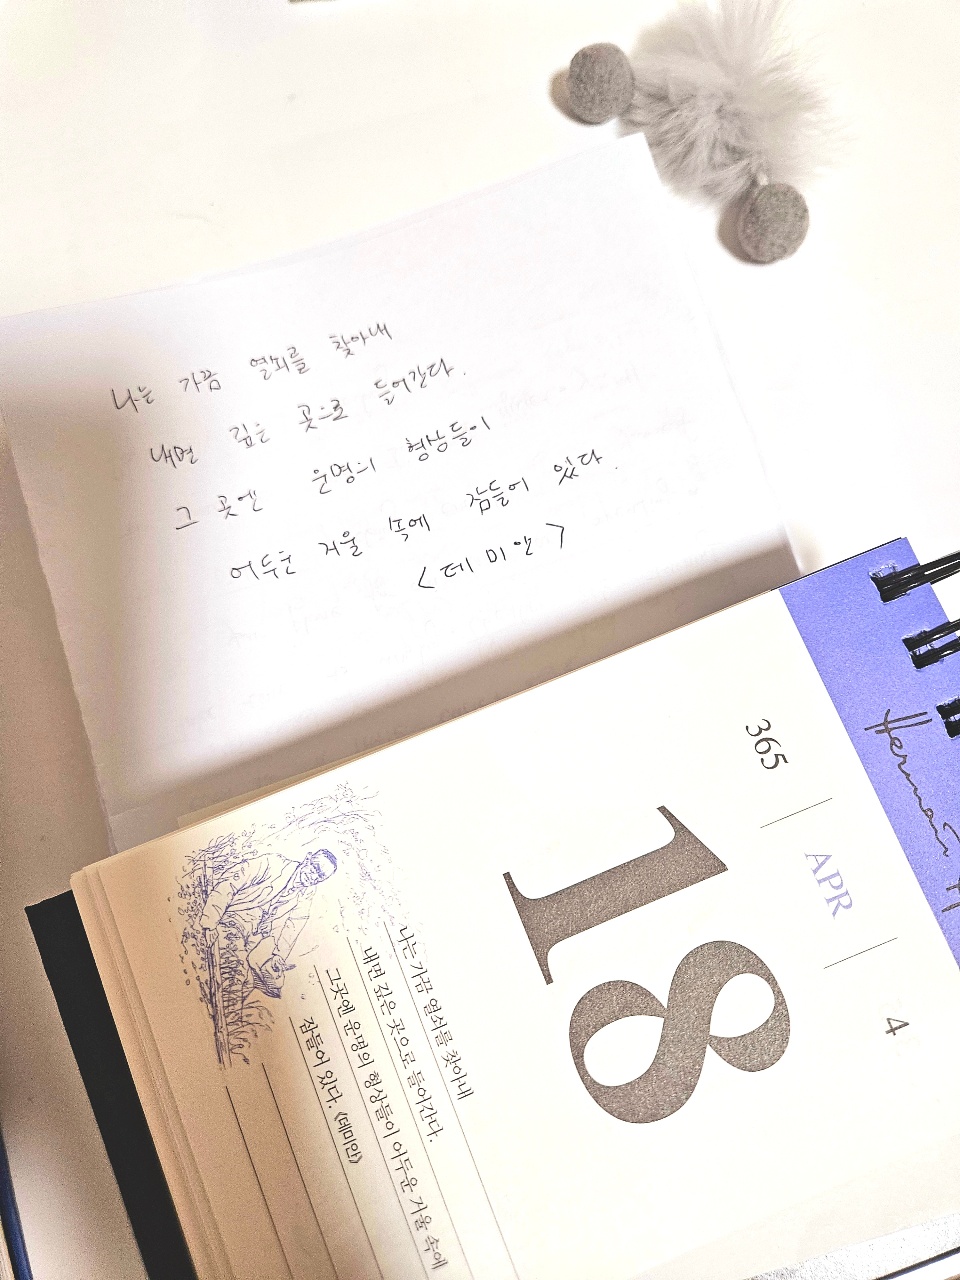 나는 가끔 열쇠를 찾아내
내면 깊은 곳으로 들어간다.
그 곳엔 운명의 형상들이
어두운 거울 속에 잠들어 있다.
<데미안>
Herman
365
APR
4
18
나는 가끔 열쇠를 찾아내
내면 깊은 곳으로 들어간다.
그곳엔 운명의 형상들이 어두운 거울 속에
잠들어 있다. 《데미안》